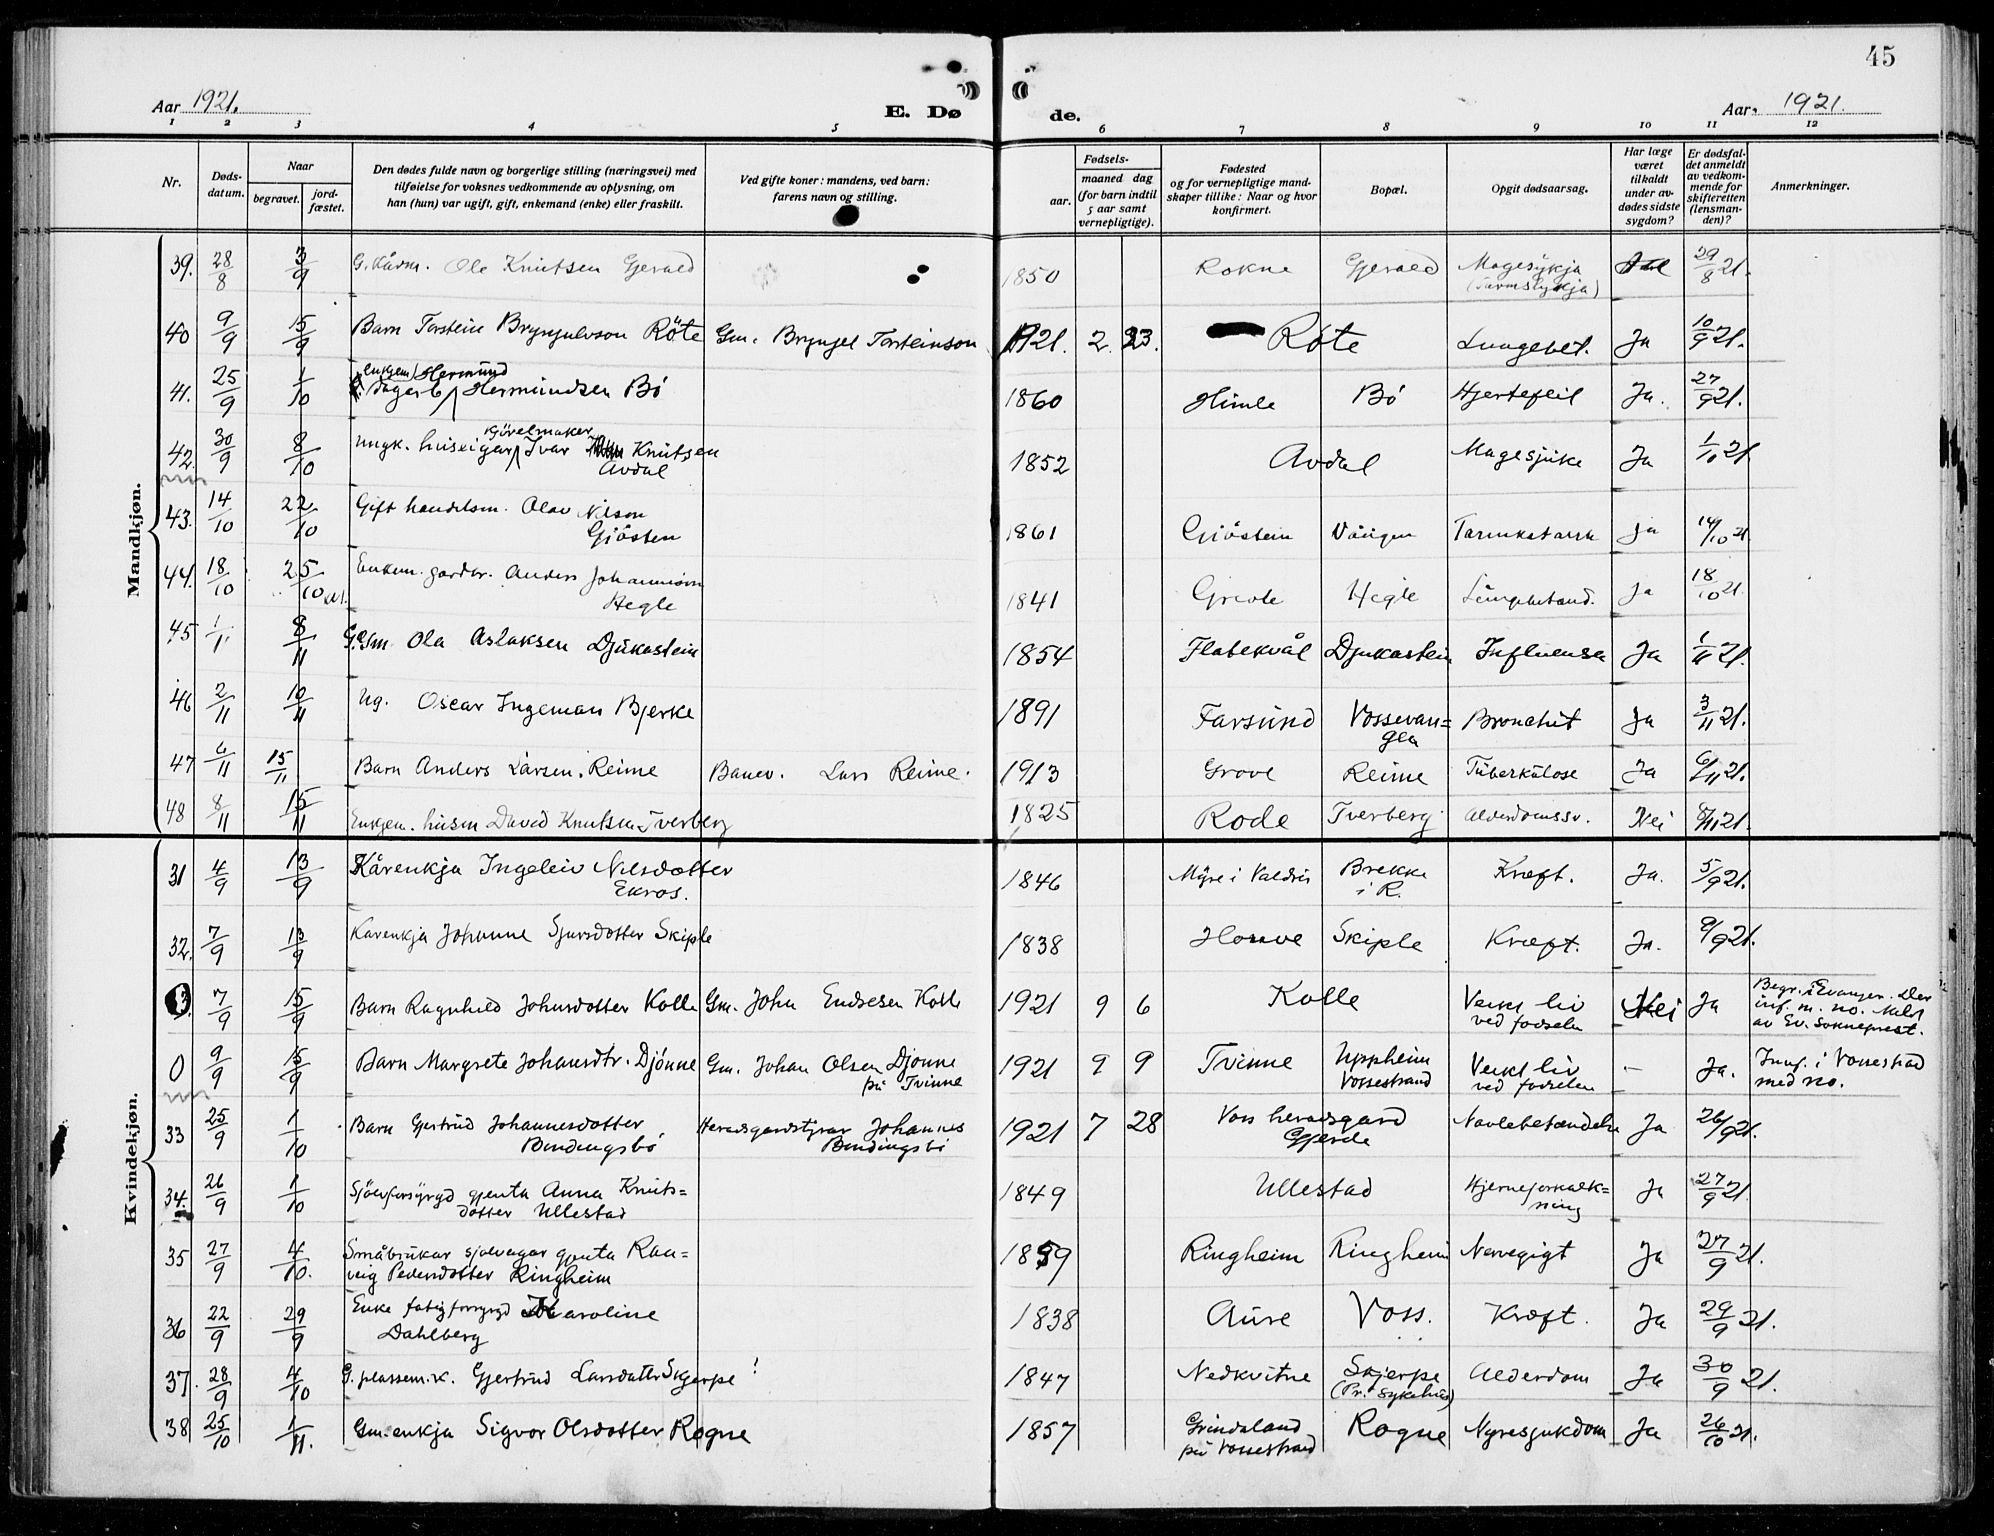 45
Aar 1921.
E. Døde.
Aar 1921.
1 2 3 4 5 6 7 8 9 10 11 12
Nr.
Dødsdatum.
Naar
begravet.
jordfæstet.
Den dødes fulde navn og borgerlige stilling (næringsvei) med
tilføielse for voksnes vedkommende av oplysning, om
han (hun) var ugift, gift, enkemand (enke) eller fraskilt.
Ved gifte koner: mandens, ved barn:
farens navn og stilling.
Fødsels-
aar.
maaned dag
(for barn indtil
5 aar samt
vernepligtige).
Fødested
og for vernepligtige mand-
skaper tillike: Naar og hvor
konfirmert.
Bopæl.
Opgit dødsaarsag.
Har læge
været
tilkaldt
under av-
dødes sidste
sygdom?
Er dødsfal-
det anmeldt
av vedkom-
mende for
skifteretten
(lensman-
den)?
Anmerkninger.
Mandkjøn.
39. 28/8 3/9 G. Kårm. Ole Knutsen Gjerald 1850 Rokne Gjerald Magesykja 29/8 21.
40 9/9 15/9 Barn Torstein Brynjulvson Röte Gm. Brynjel Torsteinson 1921. 2. 23. Røte Lungebet. Ja 10/9 21.
enkjem Hermund
41. 25/9 1/10 Hermundsen Bö 1860 Himle Bö Hjertefeil Ja. 27/9 21.
42. 30/9 8/10 ungk. huseigar Ivar Knutsen 1852 Avdal Magesjuke Ja 1/10 21
Avdal
43. 14/10 22/10 Gift handelsm. Olav Nilson 1861 Gjöstein Vangen Tarmkatarrh Ja 14/10 21
Gjösten
44. 18/10 25/10 Enkem. gardbr. Anders Johannison 1841 Greve Hegle Ja 18/10 21.
Hegle
45 1/11 8/11 G. Gm Ola Aslaksen Djukastein 1854 Flatekvål Djukastein Influensa Ja 1/11 21.
46 2/11 10/11 Ug. Oscar Ingeman Bjerke 1891 Farsund Vossevan= Bronchit Ja 3/11 21.
gen
47 6/11 15/11 Barn Anders Larsen. Reime Lars Reime. 1913 Grove Reime Tuberkulose Ja 6/11 21.
48 8/11 15/11 Enkjem. husm David Knutsen Tverberg 1825 Rode Tverberg Alderdomssv. Nei 8/11 21.
Kvindekjøn.
31 4/9 13/9 Kårenkja Ingeleiv Nilsdotter 1846 Myre i Valdris Brekke Kræft. Ja. 5/9 21.
Ekros. i R.
32. 7/9 13/9 Kårenkja Johanne Sjursdotter Skiple 1838 Horve Skiple Kræft. Ja. 9/9 21.
7/9 15/9 Barn Ragnhild Johnsdotter Kolle Gm. John Endresen Kolle 1921 9 6 Kolle Veikt liv Nei Ja Begr. i Evanger. Der
ved fødselen inf. m. no. Meld
av Ev. Sokneprest.
0 9/9 15/9 Barn Margrete Johansdtr. Djönne Gm. Johan Olsen Djönne 1921 9 9 Tvinne Uppheim Veikt liv – Ja. Innf. i Vossestrad
på Tvinne Vossestrand ved fødselen med no.
33 25/9 1/10 Barn Gjertrud Johannesdotter Heradsgardstyrar Johannes 1921 7 28 Voss heradsgard Navlebetændelse Ja 26/9 21.
Bendingsbö Bendingsbö Gjerde
34. 26/9 1/10 Sjölvforsyrgd gjenta Anna Knuts= 1849 Ullestad Hjerneforkalk= Ja 27/9 21.
dotter Ullestad ning
35 27/9 4/10. Småbrukar sjölveigar gjenta Ran= 1859 Ringheim Ringheim Nervegigt Ja 27/9 21.
veig Pedersdotter Ringheim
36 22/9 29/9 Enke fatigforsyrgd Karoline 1838 Aure Voss. Kræft. Ja 29/9 21.
Dahlberg
37. 28/9 4/10 G. plassem.k. Gjertrud Larsdatter Skjerpe 1847 Nedkvitne Skjerpe Alderdom Ja 30/9 21.
(Pr. Sykehus)
38 25/10 1/11. Gm. enkja Sigvor Olsdotter Rogne 1857 Grindaland Rogne Nyresjukdom Ja 26/10 21.
på Vossestrand